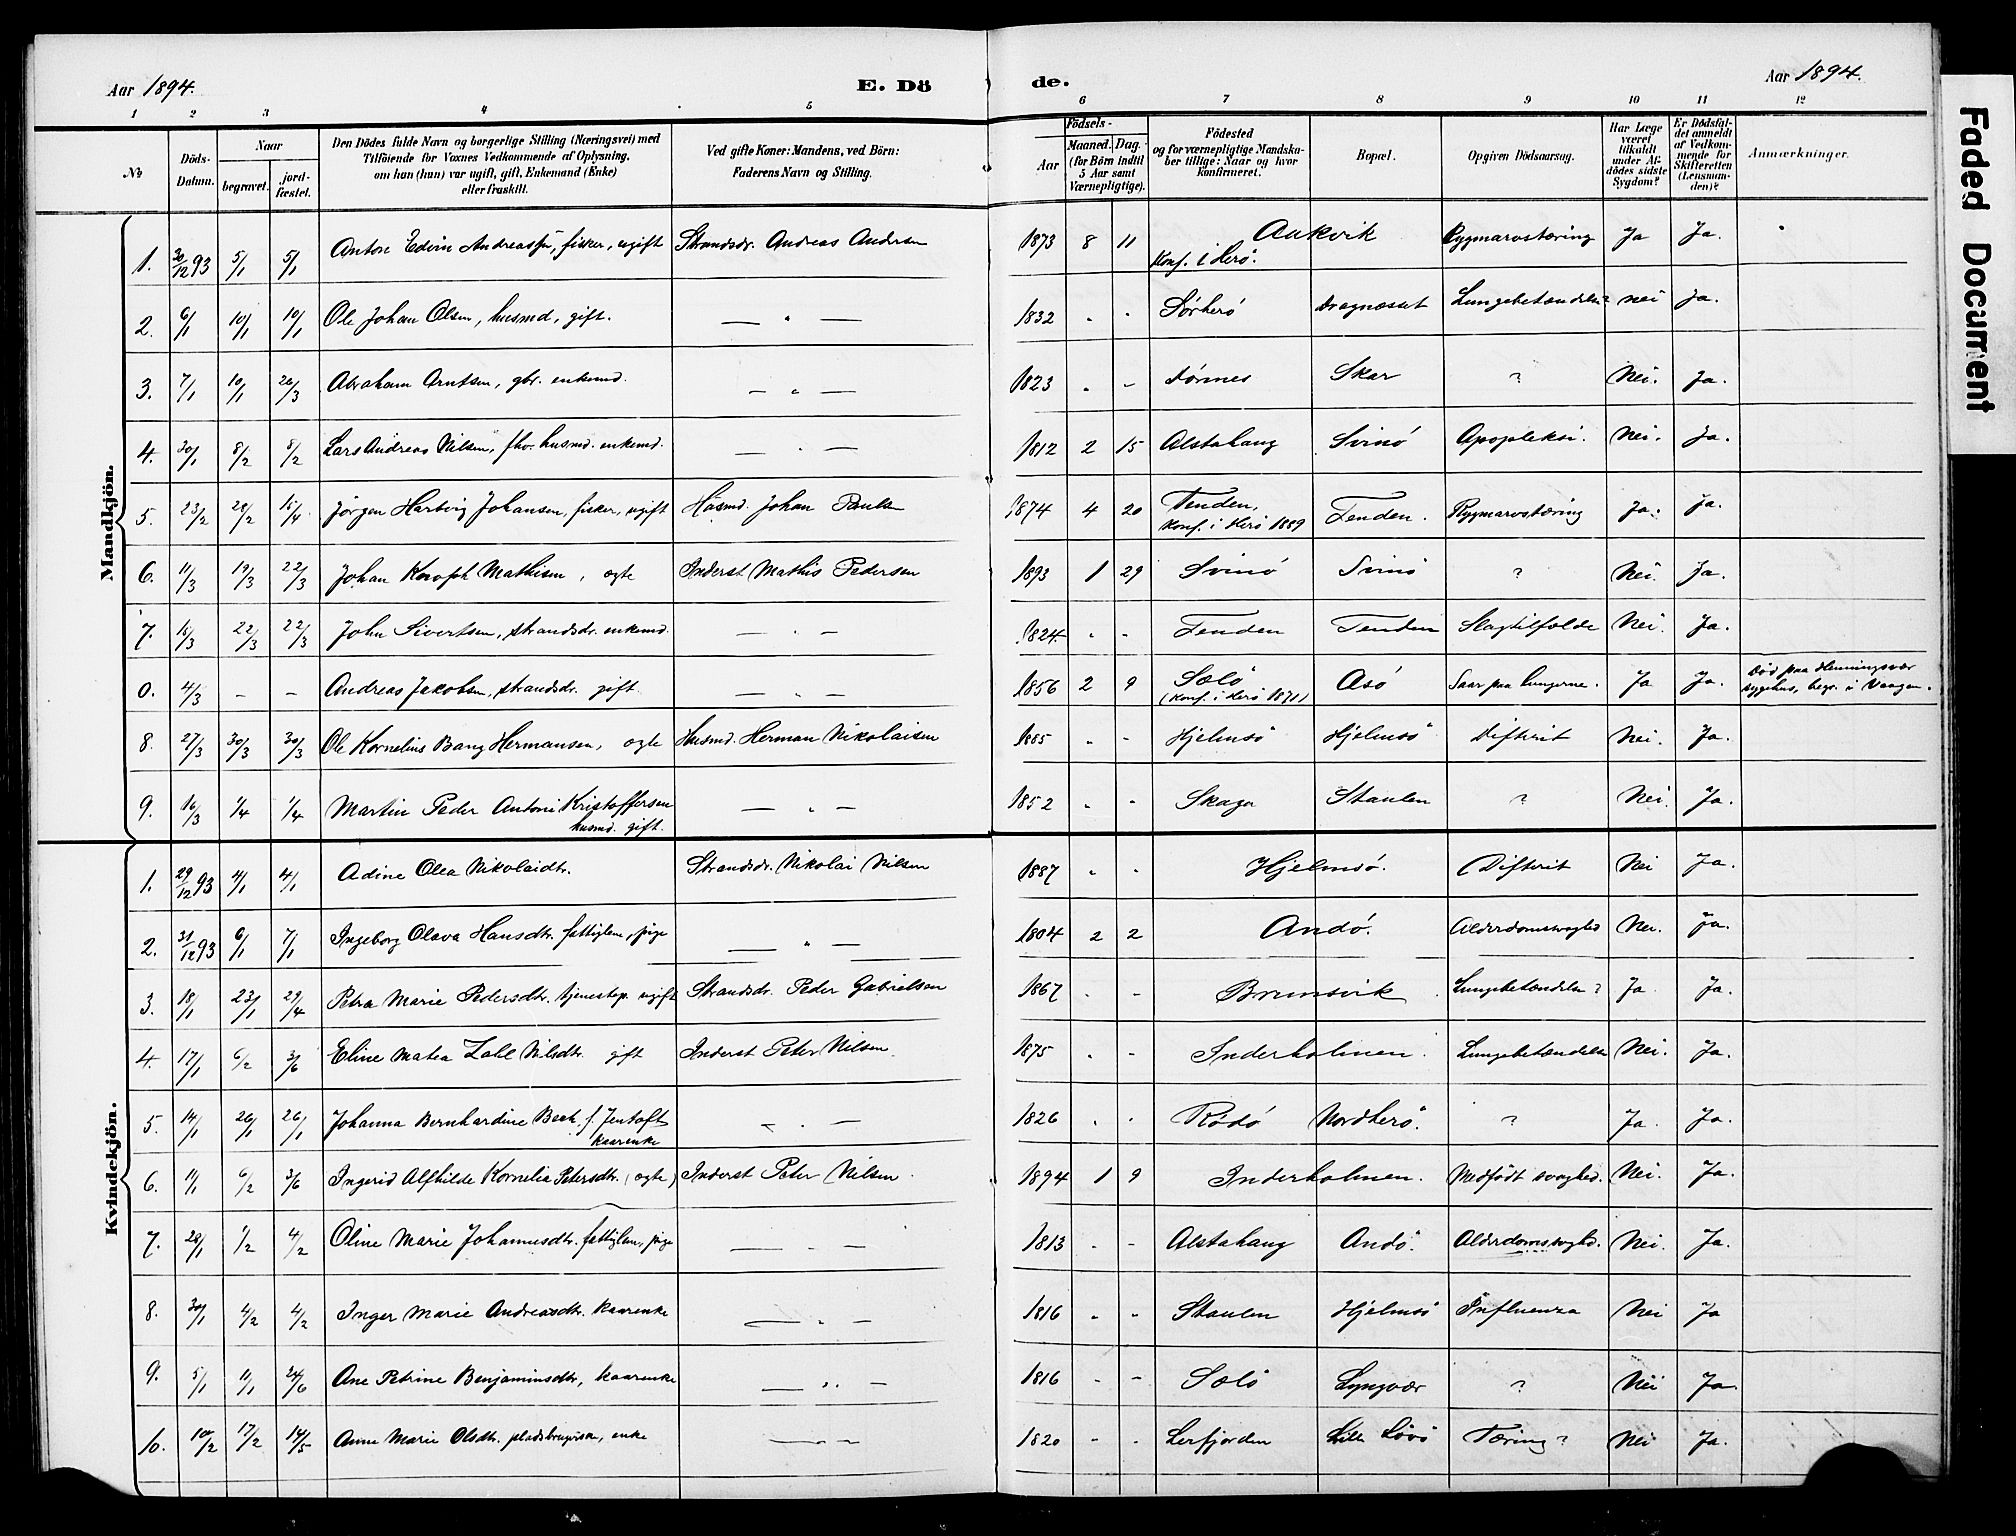 Aar 1894. E. Dö de. Aar 1894.
1 2 3 4 5 6 7 8 9 10 11 12
№ Döds-Datum. Naar begravet. jordfæstet. Den Dödes fulde Navn og borgerlige Stilling (Næringsvei) med Tilföiende for Voxnes Vedkommende af Oplysning, om han (hun) var ugift, gift, Enkemand (Enke) eller fraskilt. Ved gifte Koner: Mandens, ved Börn: Faderens Navn og Stilling. Födsels- Aar Maaned. Dag. (for Börn indtil 5 Aar samt Værnepligtige). Födested og for værnepligtige Mandskaber tillige: Naar og hvor konfirmeret. Bopæl. Opgiven Dödsaarsag. Har Læge været tilkaldt under Afdödes sidste Sygdom? Er Dödsfaldet anmeldt af Vedkommende for Skifteretten (Lensmanden)? Anmærkninger.
Faded Document
Mandkjön.
1. 30/12 93 5/1 5/1 Anton Edvin Andreass., fisker, ugift Strandsdr. Andreas Andersen 1873 8 11 Aakvik Konf. i Herö. Rygmarvstæring Ja Ja.
2. 6/1 10/1 10/1 Ole Johan Olsen, husmd, gift. — " — 1832 " " Sörherö Dragnæsset Lungebetændelse? nei Ja.
3. 7/1 10/1 26/3 Abraham Arntsen, gbr. enkemd. — " — 1823 " - Dönnes Skar ? Nei. Ja.
4. 30/1 8/2 8/2 Lars Andreas Nilsen, fhv. husmd. enkemd. — " — 1812 2 15 Alstahaug Svinö Apopleksi. Nei. Ja.
5. 23/2 28/2 15/4 Jörgen Hartvig Johansen, fisker, ugift Husmd. Johan Pauls 1874 4 20 Tenden, konf. i Herö 1889 Tenden. Rygmarvstæring Ja. Ja.
6. 11/3 19/3 22/3 Johan Mathisen, ægte Inderst Mathis Pedersen 1893 1 29 Svinö Svinö ? Nei. Ja.
7. 16/3 22/3 22/3 John Sivertsen, strandsdr. enkemd. — " — 1824 " - Tenden Tenden Slagtilfælde Nei. Ja.
0. 4/3 - - Andreas Jakobsen, strandsdr. gift. — " — 1856 2 9 Sölö (konf. i Herö 1871) Asö Saar paa lungerne. Ja Ja. Död paa Henningsvær sygehus, begr. i Vaagan.
8. 27/3 30/3 30/3 Ole Kornelius Bang Hermansen, ægte Husmd. Herman Nikolaisen 1885 " - Hjelmsö Hjelmsö Difterit Nei. Ja.
9. 16/3 1/4 1/4 Martin Peder Antoni Kristoffersen husmd. gift. — " — 1852 " " Skaga Staulen ? Nei. Ja.
Kvindekjön.
1. 29/12 93 4/1 4/1 Adine Olea Nikolaidtr. Strandsdr. Nikolai Nilsen 1887 " " Hjelmsö. Difterit Nei Ja.
2. 31/12 93 6/1 7/1 Ingeborg Olava Hansdtr. fattiglem, pige — " — 1804 2 2 Andö. Alderdomssvaghed Nei. Ja.
3. 18/1 23/1 29/4 Petra Marie Pedersdtr. tjenestep. ugift Strandsdr. Peder Gabrielsen 1867 " - Brunsvik Lungebetændelse? Ja. Ja.
4. 17/1 6/2 3/6 Eline Matea Zahl Nilsdtr. gift Inderst Peter Nilsen. 1875 " - Inderholmen. Lungebetændelse Nei. Ja.
5. 14/1 26/1 26/1 Johanna Bernhardine Beck, f. Jentoft kaarenke — " — 1826 " " Rödö Nordherö. ? Ja. Ja.
6. 11/1 6/2 3/6 Ingerid Alfhilde Kornelia Petersdtr. (ægte) Inderst Peter Nilsen. 1894 1 9 Inderholmen. Medfödt svaghed. Nei. Ja.
7. 28/1 1/2 4/2 Oline Marie Johannesdtr. fattiglem, pige — " — 1813 " - Alstahaug Andö. Alderdomssvaghd. Nei. Ja.
8. 30/1 4/2 4/2 Inger Marie Andreasdtr. kaarenke — " — 1816 " " Staulen Hjelmsö Influenza Nei Ja
9. 5/1 11/1 24/6 Ane Petrine Benjaminsdtr, kaarenke — " — 1816 - - Sölö Lyngvær ? Nei Ja
10. 10/2 17/2 14/5 Anne Marie Olsdtr. pladsbrugerske, enke — " — 1820 - - Leirfjorden Lille Lövö Tæring? Nei Ja.